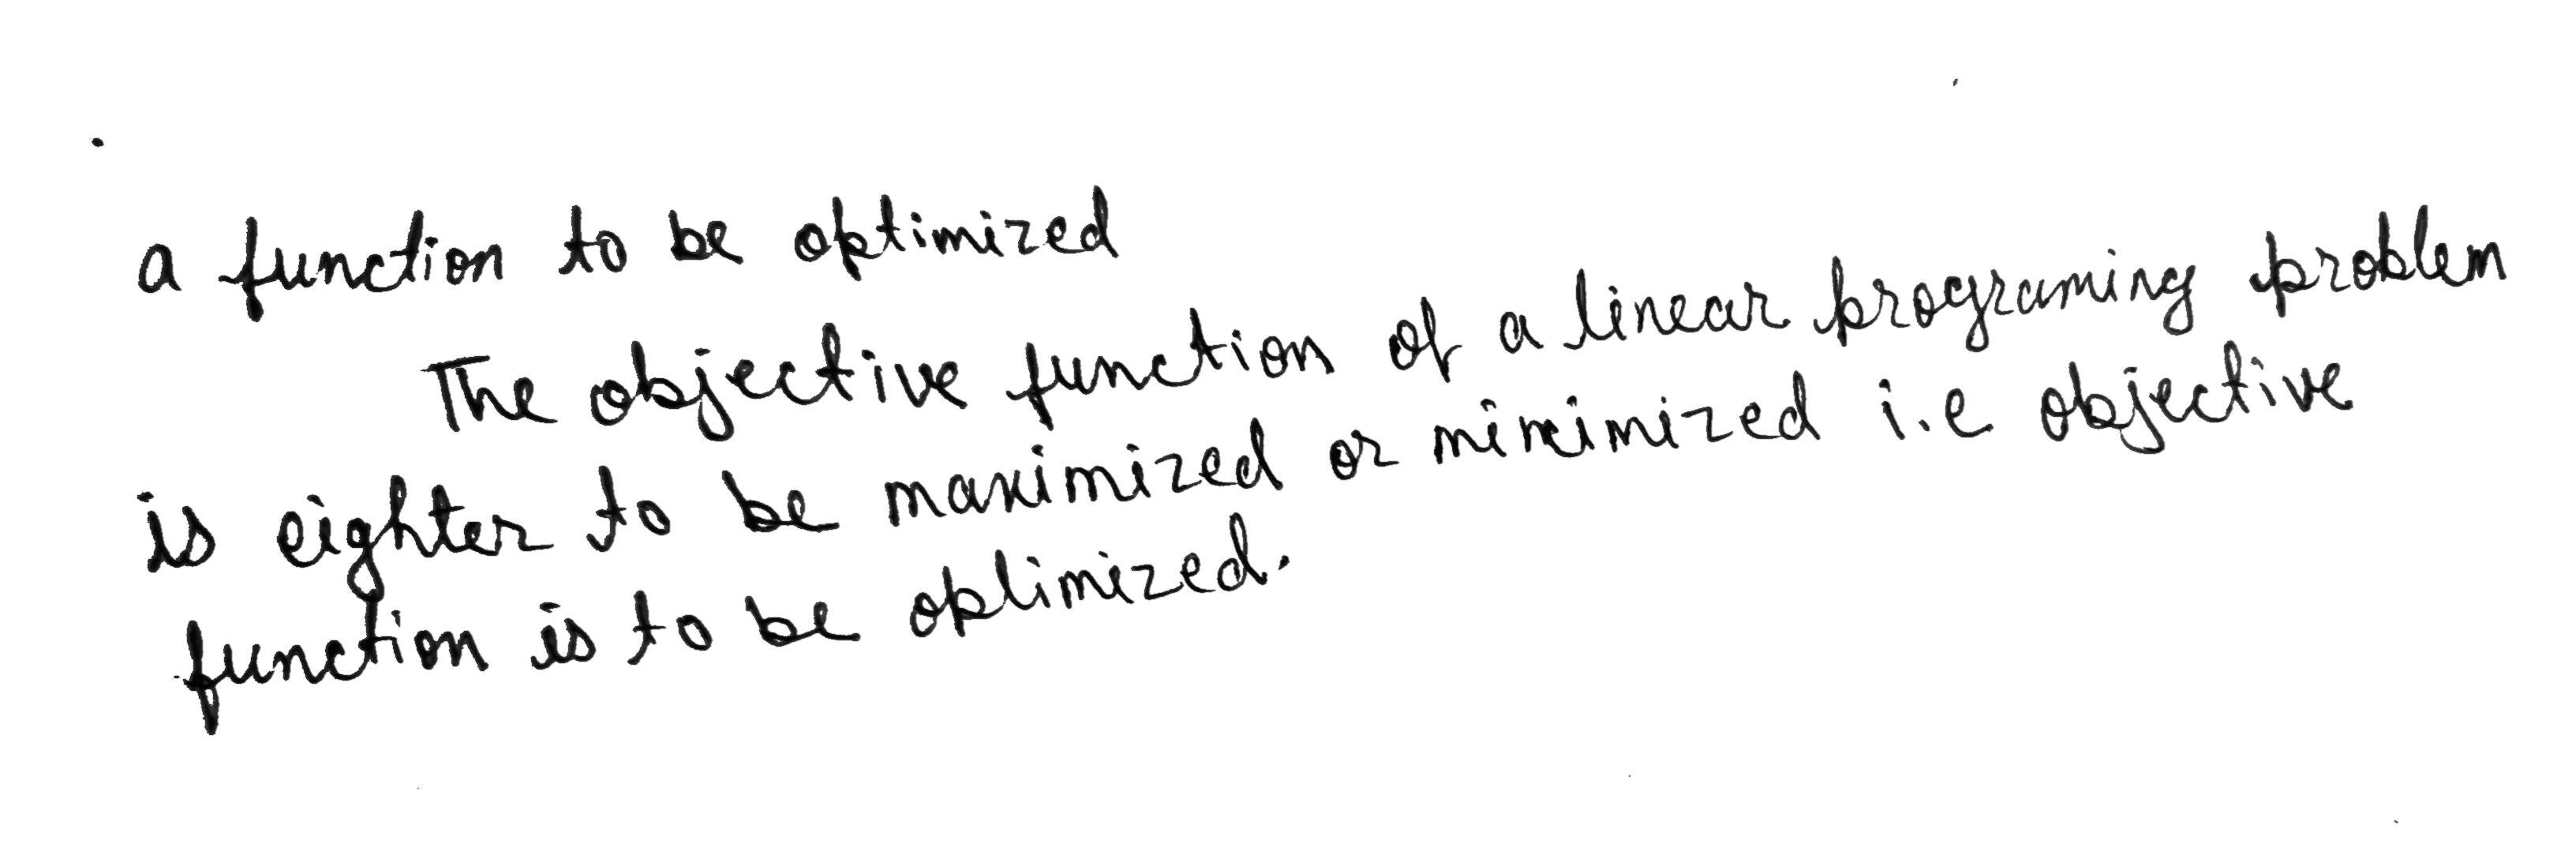 a function to be optimized
The objective function of a linear programing problem
is eighter to be maximized or minimized i.e objective
function is to be optimized.